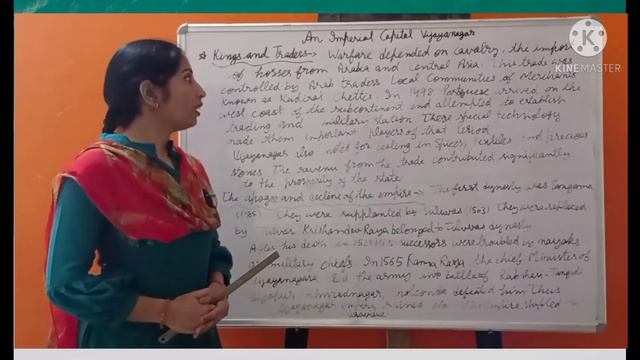 An Imperial Capital Vijayanagar
* Kings and Traders → Warfare depended on cavalry, the import
of horses from Arabia and Central Asia. This trade was
controlled by Arab traders Local Communities of Merchants
known as Kudirai Chettis. In 1498 Portuguese arrived on the
west coast of the subcontinent and attempted to establish
trading and military station These special technology
made them important players of that
Vijayanagar also noted for dealing in spices, textiles and precious
stones. The revenue from the trade contributed significantly
to the prosperity of the state
The apogee and decline of the empire → The first dynasty was Sangama
(1485) They were supplanted by Suluvas (1503) They were replaced
by Krishandev Raya belonged to Tuluvas dynasty
After his death in 1529 His successors were troubled by nayaks
military chiefs. In 1565 Rama Raya the chief Minister of
Vijayanagara led the army into battle
defeated him Thus
KINEMASTER